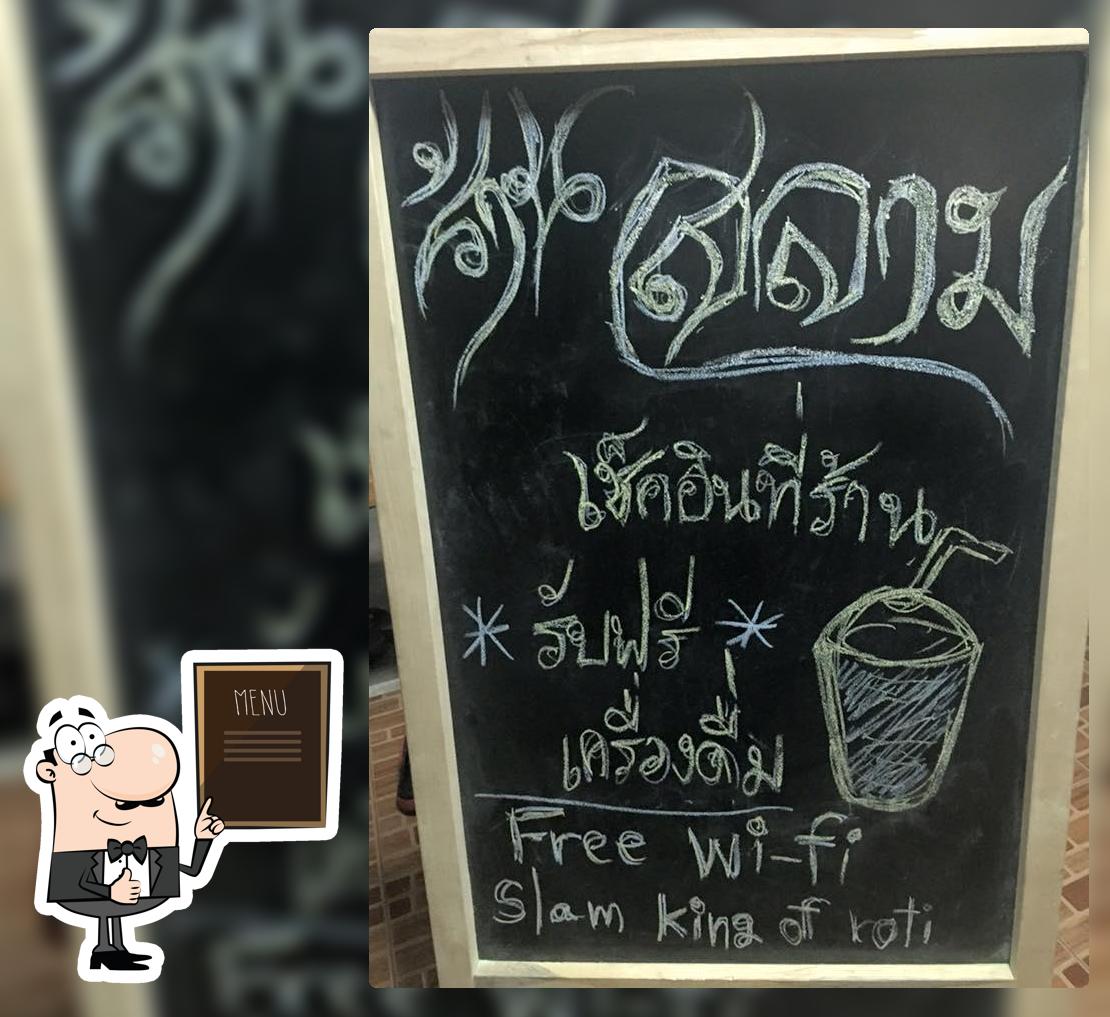 ร้าน สลาม
เช็คอินที่ร้าน
* รับฟรี *
เครื่องดื่ม
Free Wi-fi
Slam king of roti
MENU